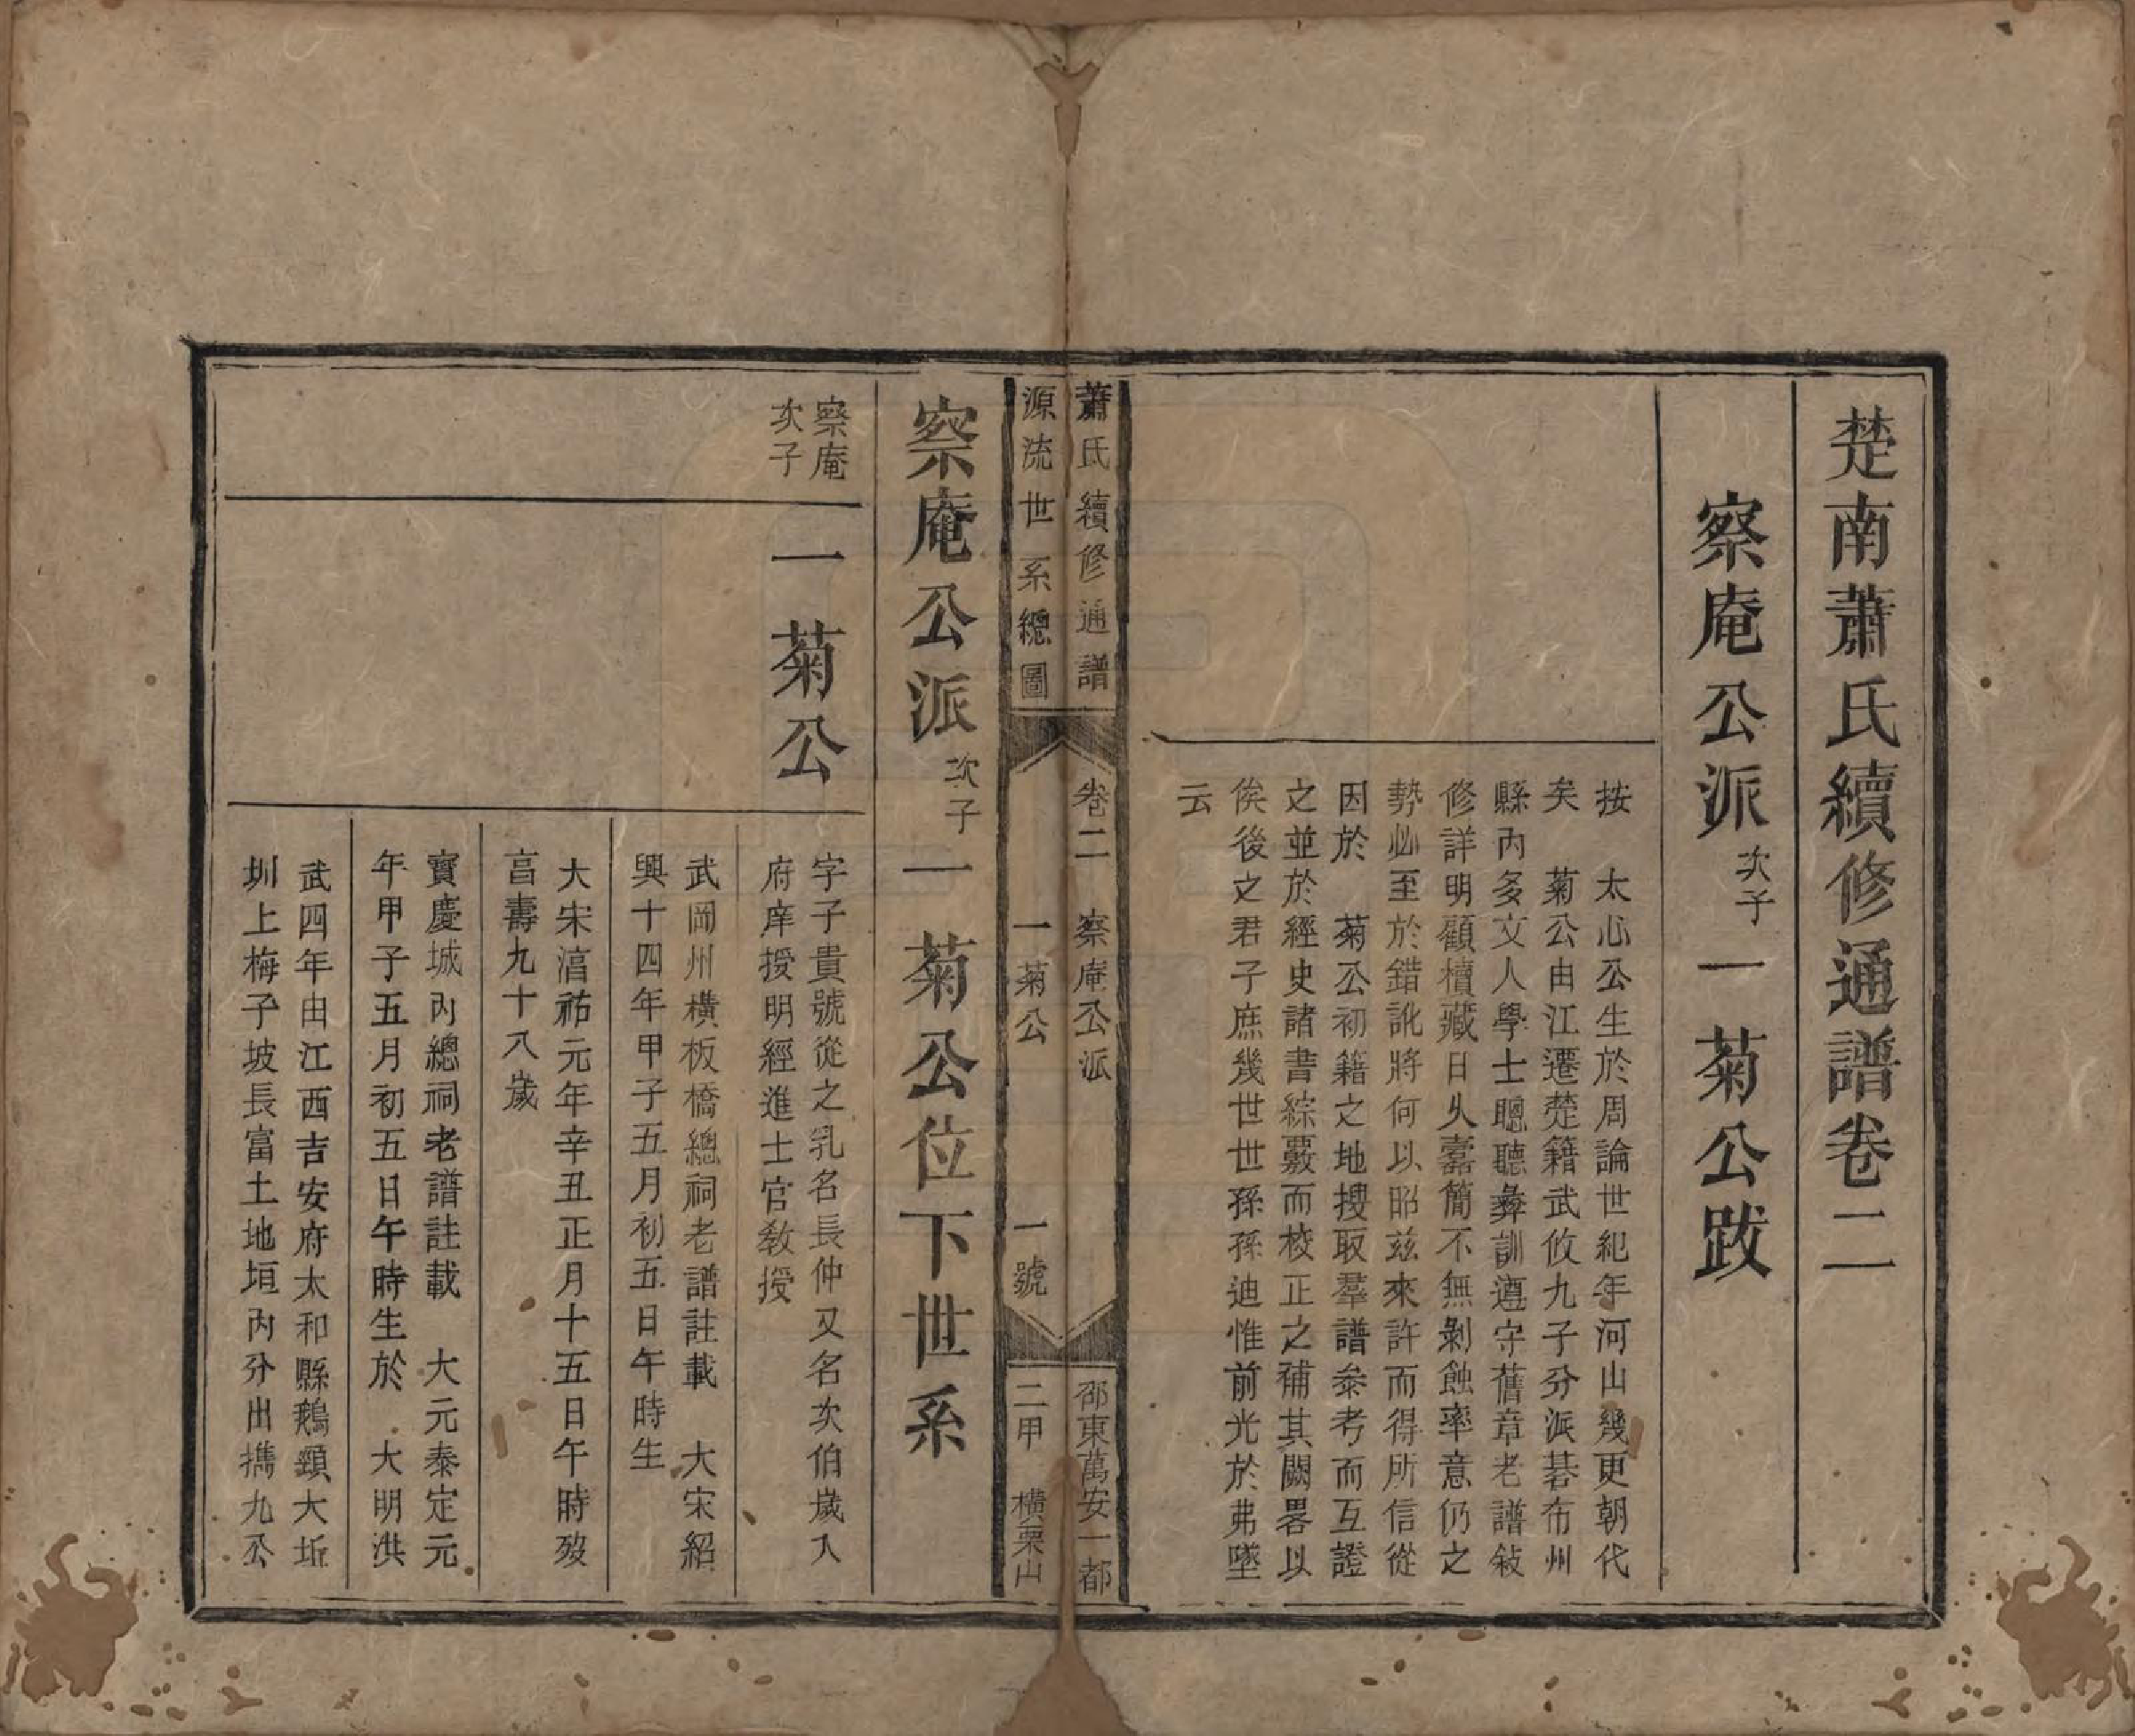 楚南蕭氏續修通譜卷二
察庵公派次子一菊公跋
按　太心公生於周論世紀年河山幾更朝代
矣　菊公由江遷楚籍武攸九子分派碁布州
縣內多文人學士聰聽彝訓遵守舊章老譜敍
修詳明顧櫝藏日久蠹簡不無剝蝕率意仍之
勢必至於錯訛將何以昭玆來許而得所信從
因於　菊公初籍之地搜取羣譜叅考而互證
之並於經史諸書綜覈而校正之補其闕畧以
俟後之君子庶幾世世孫孫迪惟前光於弗墜
云
蕭氏續修通譜　卷二　察庵公派　邵東萬安一都
源流世系總圖　一菊公　一號　二甲　橫栗山
察庵公派次子一菊公位下世系
察庵
次子
一菊公
字子貴號從之乳名長仲又名次伯歲入
府庠授明經進士官教授
武岡州橫板橋總祠老譜註載　大宋紹
興十四年甲子五月初五日午時生
大宋淯祐元年辛丑正月十五日午時歿
享壽九十八歲
寳慶城內總祠老譜註載　大元泰定元
年甲子五月初五日午時生於　大明洪
武四年由江西吉安府太和縣鵝頸大坵
圳上梅子坡長富土地垣內分出攜九公